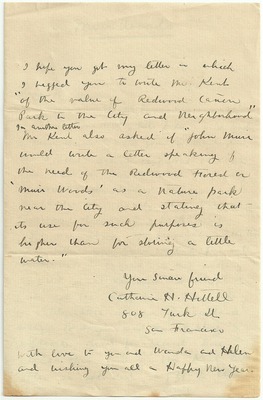 I hope you got my letter in which
I begged you to write Mr. Kent
"of the value of Redwood Canon
Park to the City and Neighborhood"
In another letter
Mr Kent also asked if "John Muir
would write a letter speaking of
the need of the Redwood Forest or
'Muir Woods' as a Nature Park
near the City and stating that
its use for such purposes is
higher than for storing a little
water."
Your sincere friend
Catharine H. Hittell
808 Turk St
San Francisco
With love to you and Wanda and Helen
and wishing you all a Happy New Year.